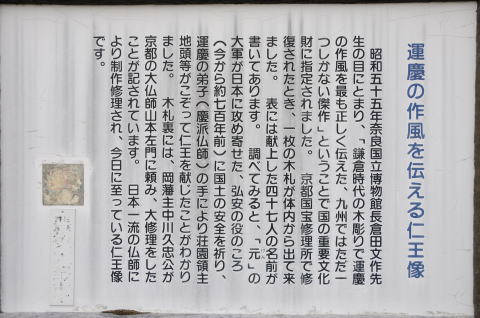 運慶の作風を伝える仁王像
昭和五十五年奈良国立博物館長倉田文作先
生の目にとまり、「鎌倉時代の木彫りで運慶
の作風を最も正しく伝えた、九州ではただ一
つしかない傑作」ということで国の重要文化
財に指定されました。 京都国宝修理所で修
復されたとき、一枚の木札が体内から出て来
ました。 表には献上した四十七人の名前が
書いてあります。 調べてみると、「元」の
大軍が日本に攻め寄せた、弘安の役のころ
(今から約七百年前)に国土の安全を祈り、
運慶の弟子(慶派仏師)の手により荘園領主
地頭等がこぞって仁王を献じたことがわかり
ました。 木札裏には、岡藩主中川久忠公が
京都の大仏師山本左門に頼み、大修理をした
ことが記されています。 日本一流の仏師に
より制作修理され、今日に至っている仁王像
です。